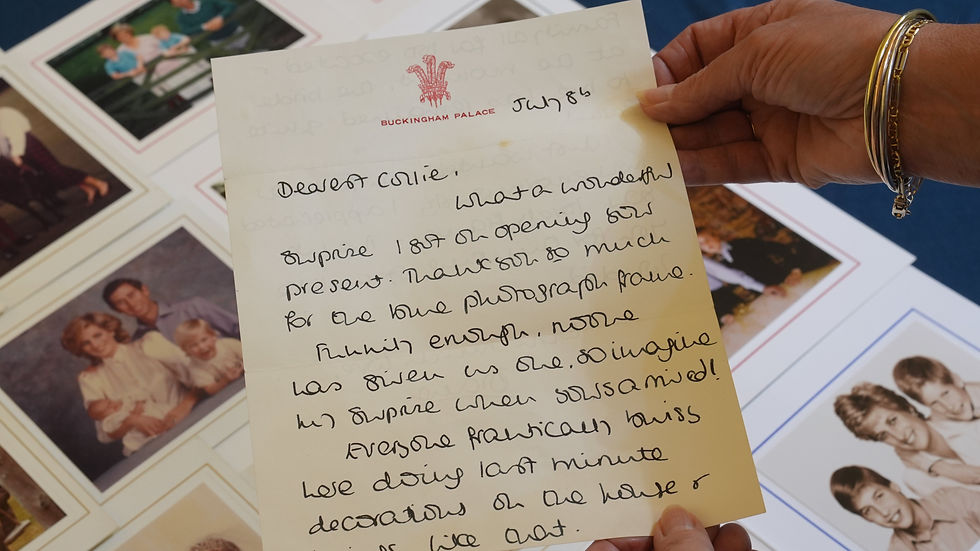 BUCKINGHAM PALACE July 86
Dearest Collie,
What a wonderful
surprise I got on opening your
present. Thank you so much
for the photograph frame.
Funnily enough, no one
has given us one, so imagine
my surprise when yours arrived!
Everyone frantically busy
here doing last minute
decorations on the house &
things like that.